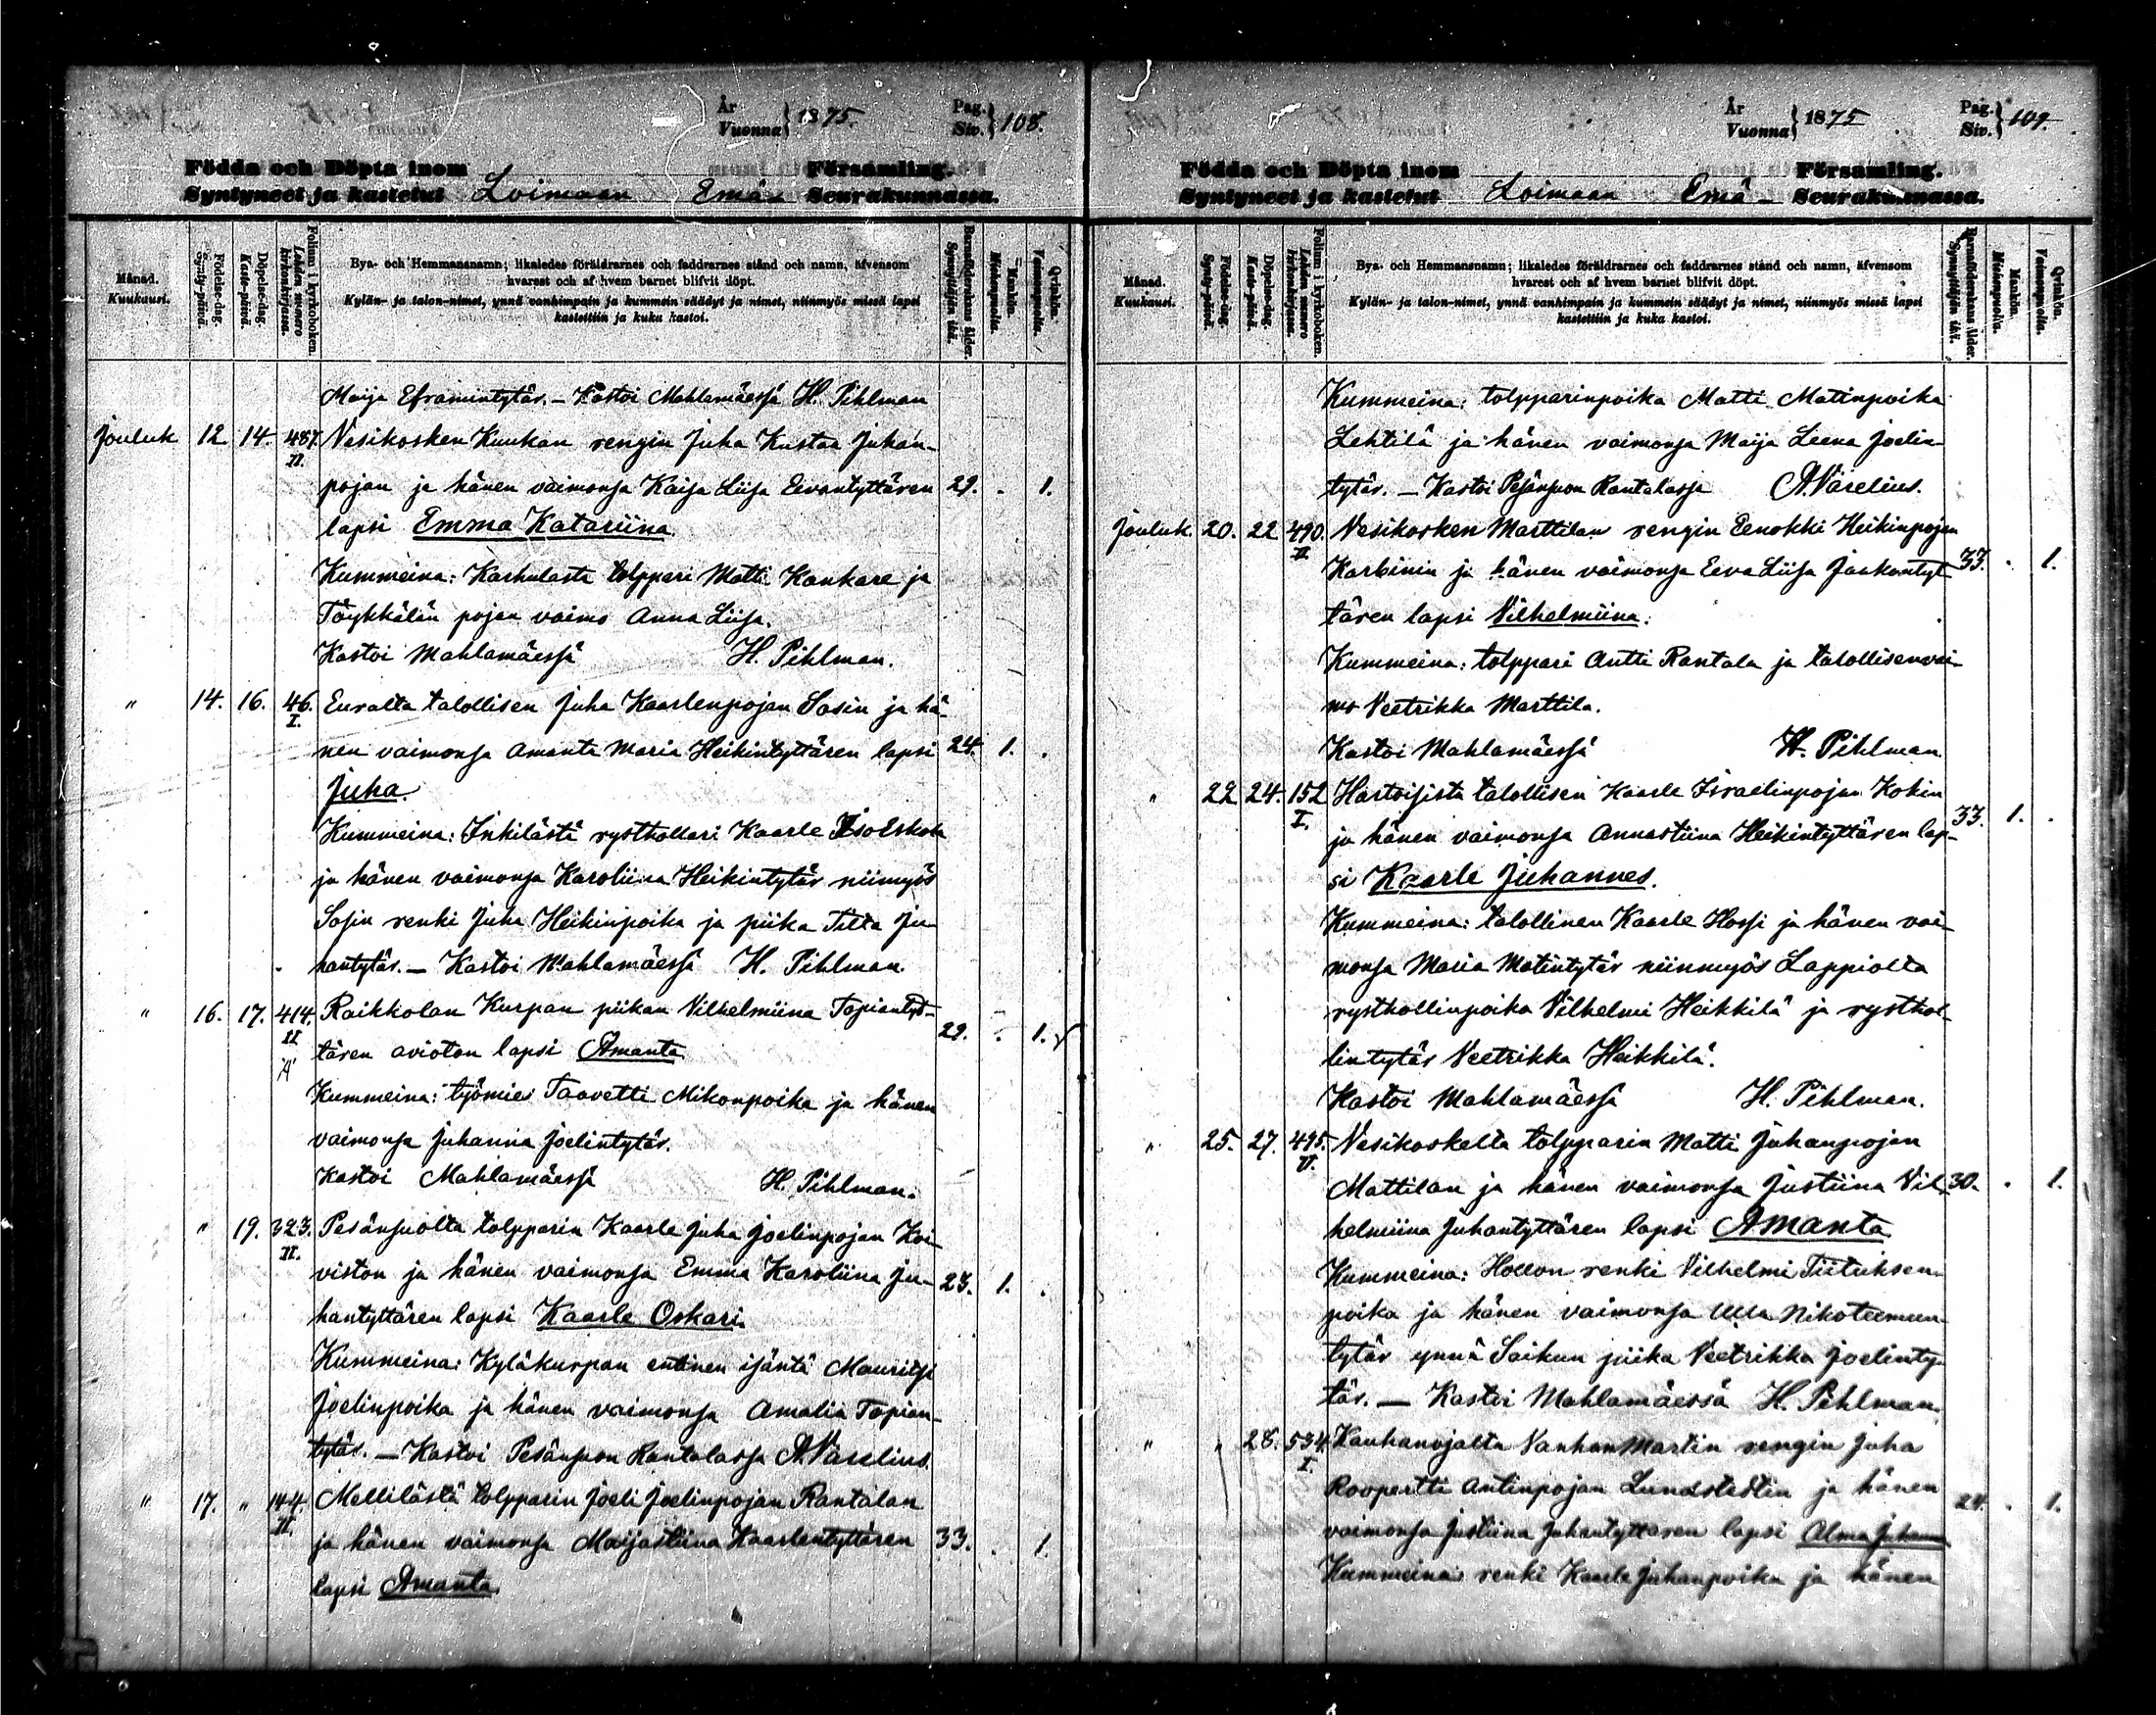 År
Vuonna } 1875. Pag.
Siv. } 108.
Födda och Döpta inom Församling.
Syntyneet ja kastetut Loimaan Emä- Seurakunnassa.
Månad.
Kuukausi.
Födelse-dag.
Synty-päivä.
Döpelse-dag.
Kaste-päivä.
Folium i kyrkoboken.
Lehden numero kirkonkirjassa.
Bya- och Hemmansnamn; likaledes föräldrarnes och faddrarnes stånd och namn, äfvensom
hvarest och af hvem barnet blifvit döpt.
Kylän- ja talon-nimet, ynnä vanhimpain ja kummein säädyt ja nimet, niinmyös missä lapsi
kastettiin ja kuka kastoi.
Barnaföderskans ålder.
Synnyttäjän ikä.
Mankön.
Miesnpuolia.
Qvinkön.
Vaimonpuolia.
Maija Eframintytär. – Kastoi Mahlamäessä H. Pihlman
Jouluk 12 14. 487. Vesikosken Kuukan rengin Juha Kustaa Juhan-
II.
pojan ja hänen vaimonsa Kaisa Liisa Eevantyttären 29. . 1.
lapsi Emma Katariina.
Kummeina: Karhulasta tolppari Matti Kankare ja
Töykkälän pojan vaimo Anna Liisa.
Kastoi Mahlamäessä H. Pihlman.
" 14. 16. 46. Euralta talollisen Juha Kaarlenpojan Sasin ja hä-
I.
nen vaimonsa Amanta Maria Heikintyttären lapsi 24. 1. .
Juha.
Kummeina: Inkilästä rysthollari Kaarle IsoEskola
ja hänen vaimonsa Karoliina Heikintytär niimyös
Sasin renki Juha Heikinpoika ja piika Tilta Ju-
hantytär. – Kastoi Mahlamäessä H. Pihlman.
" 16. 17. 414. Raikkolan Kurpan piikan Vilhelmiina Tapiantyt-
II
29. . 1.
tären avioton lapsi Amanta
Kummeina: työmies Taavetti Mikonpoika ja hänen
vaimonsa Juhanna Joelintytär.
Kastoi Mahlamäessä H. Pihlman.
" 19. 323. Pesänsuolta tolpparin Kaarle Juha Joelinpojan Koi-
II.
viston ja hänen vaimonsa Emma Karoliina Ju- 23. 1. .
hantyttären lapsi Kaarle Oskari.
Kummeina: Kyläkurpan entinen isäntä Mauritsi
Joelinpoika ja hänen vaimonsa Amalia Tapian-
tytär. – Kastoi Pesänsuon Rantalassa A. Varelius.
" 17. " 144. Mellilästä tolpparin Joeli Joelinpojan Rantalan
II.
ja hänen vaimonsa Maijastiina Kaarlentyttären 33. . 1.
lapsi Amanta.
År
Vuonna } 1875 Pag.
Siv. } 109.
Födda och Döpta inom Församling.
Syntyneet ja kastetut Loimaan Emä- Seurakunnassa.
Månad.
Kuukausi.
Födelse-dag.
Synty-päivä.
Döpelse-dag.
Kaste-päivä.
Folium i kyrkoboken.
Lehden numero kirkonkirjassa.
Bya- och Hemmansnamn; likaledes föräldrarnes och faddrarnes stånd och namn, äfvensom
hvarest och af hvem barnet blifvit döpt.
Kylän- ja talon-nimet, ynnä vanhimpain ja kummein säädyt ja nimet, niinmyös missä lapsi
kastettiin ja kuka kastoi.
Barnaföderskans ålder.
Synnyttäjän ikä.
Mankön.
Miesnpuolia.
Qvinkön.
Vaimonpuolia.
Kummeina: tolpparinpoika Matti Matinpoika
Lehtilä ja hänen vaimonsa Maija Leena Joelin-
tytär. – Kastoi Pesänsuon Rantalassa A. Varelius.
Jouluk. 20. 22 490. Vesikosken Marttilan rengin Eenokki Heikinpojan
II
Karbinin ja hänen vaimonsa Eeva Liisa Jaakontyt- 33. . 1.
tären lapsi Vilhelmiina.
Kummeina: tolppari Antti Rantala ja talollisenvai-
mo Veetrikka Marttila.
Kastoi Mahlamäessä H. Pihlman.
" 22 24. 152 Hartoisista talollisen Kaarle Israelinpojan Kokin
I.
33. 1. .
ja hänen vaimonsa Annastiina Heikintyttären lap-
si Kaarle Juhannes.
Kummeina: talollinen Kaarle Hossi ja hänen vai-
monsa Maria Matintytär niinmyös Lappiolta
rysthollinpoika Vilhelmi Heikkilä ja rysthol-
lintytär Veetrikka Heikkilä.
Kastoi Mahlamäessä H. Pihlman.
" 25. 27. 495. Vesikoskelta tolpparin Matti Juhanpojan
II.
Mattilan ja hänen vaimonsa Justiina Vil- 30. . 1.
helmiina Juhantyttären lapsi Amanta
Kummeina: renki Vilhelmi Tiituksen-
poika ja hänen vaimonsa Ulla Nikoteemun-
tytär ynnä Saikun piika Veetrikka Joelinty-
tär. – Kastoi Mahlamäessä H. Pihlman.
" " 28. 534. Kauhanojalta VanhanMartin rengin Juha
I.
Roopertti Antinpojan Lundstedtin ja hänen 24. . 1.
vaimonsa Justiina Juhantyttären lapsi Alma
Kummeina: renki Kaarle Juhanpoika ja hänen